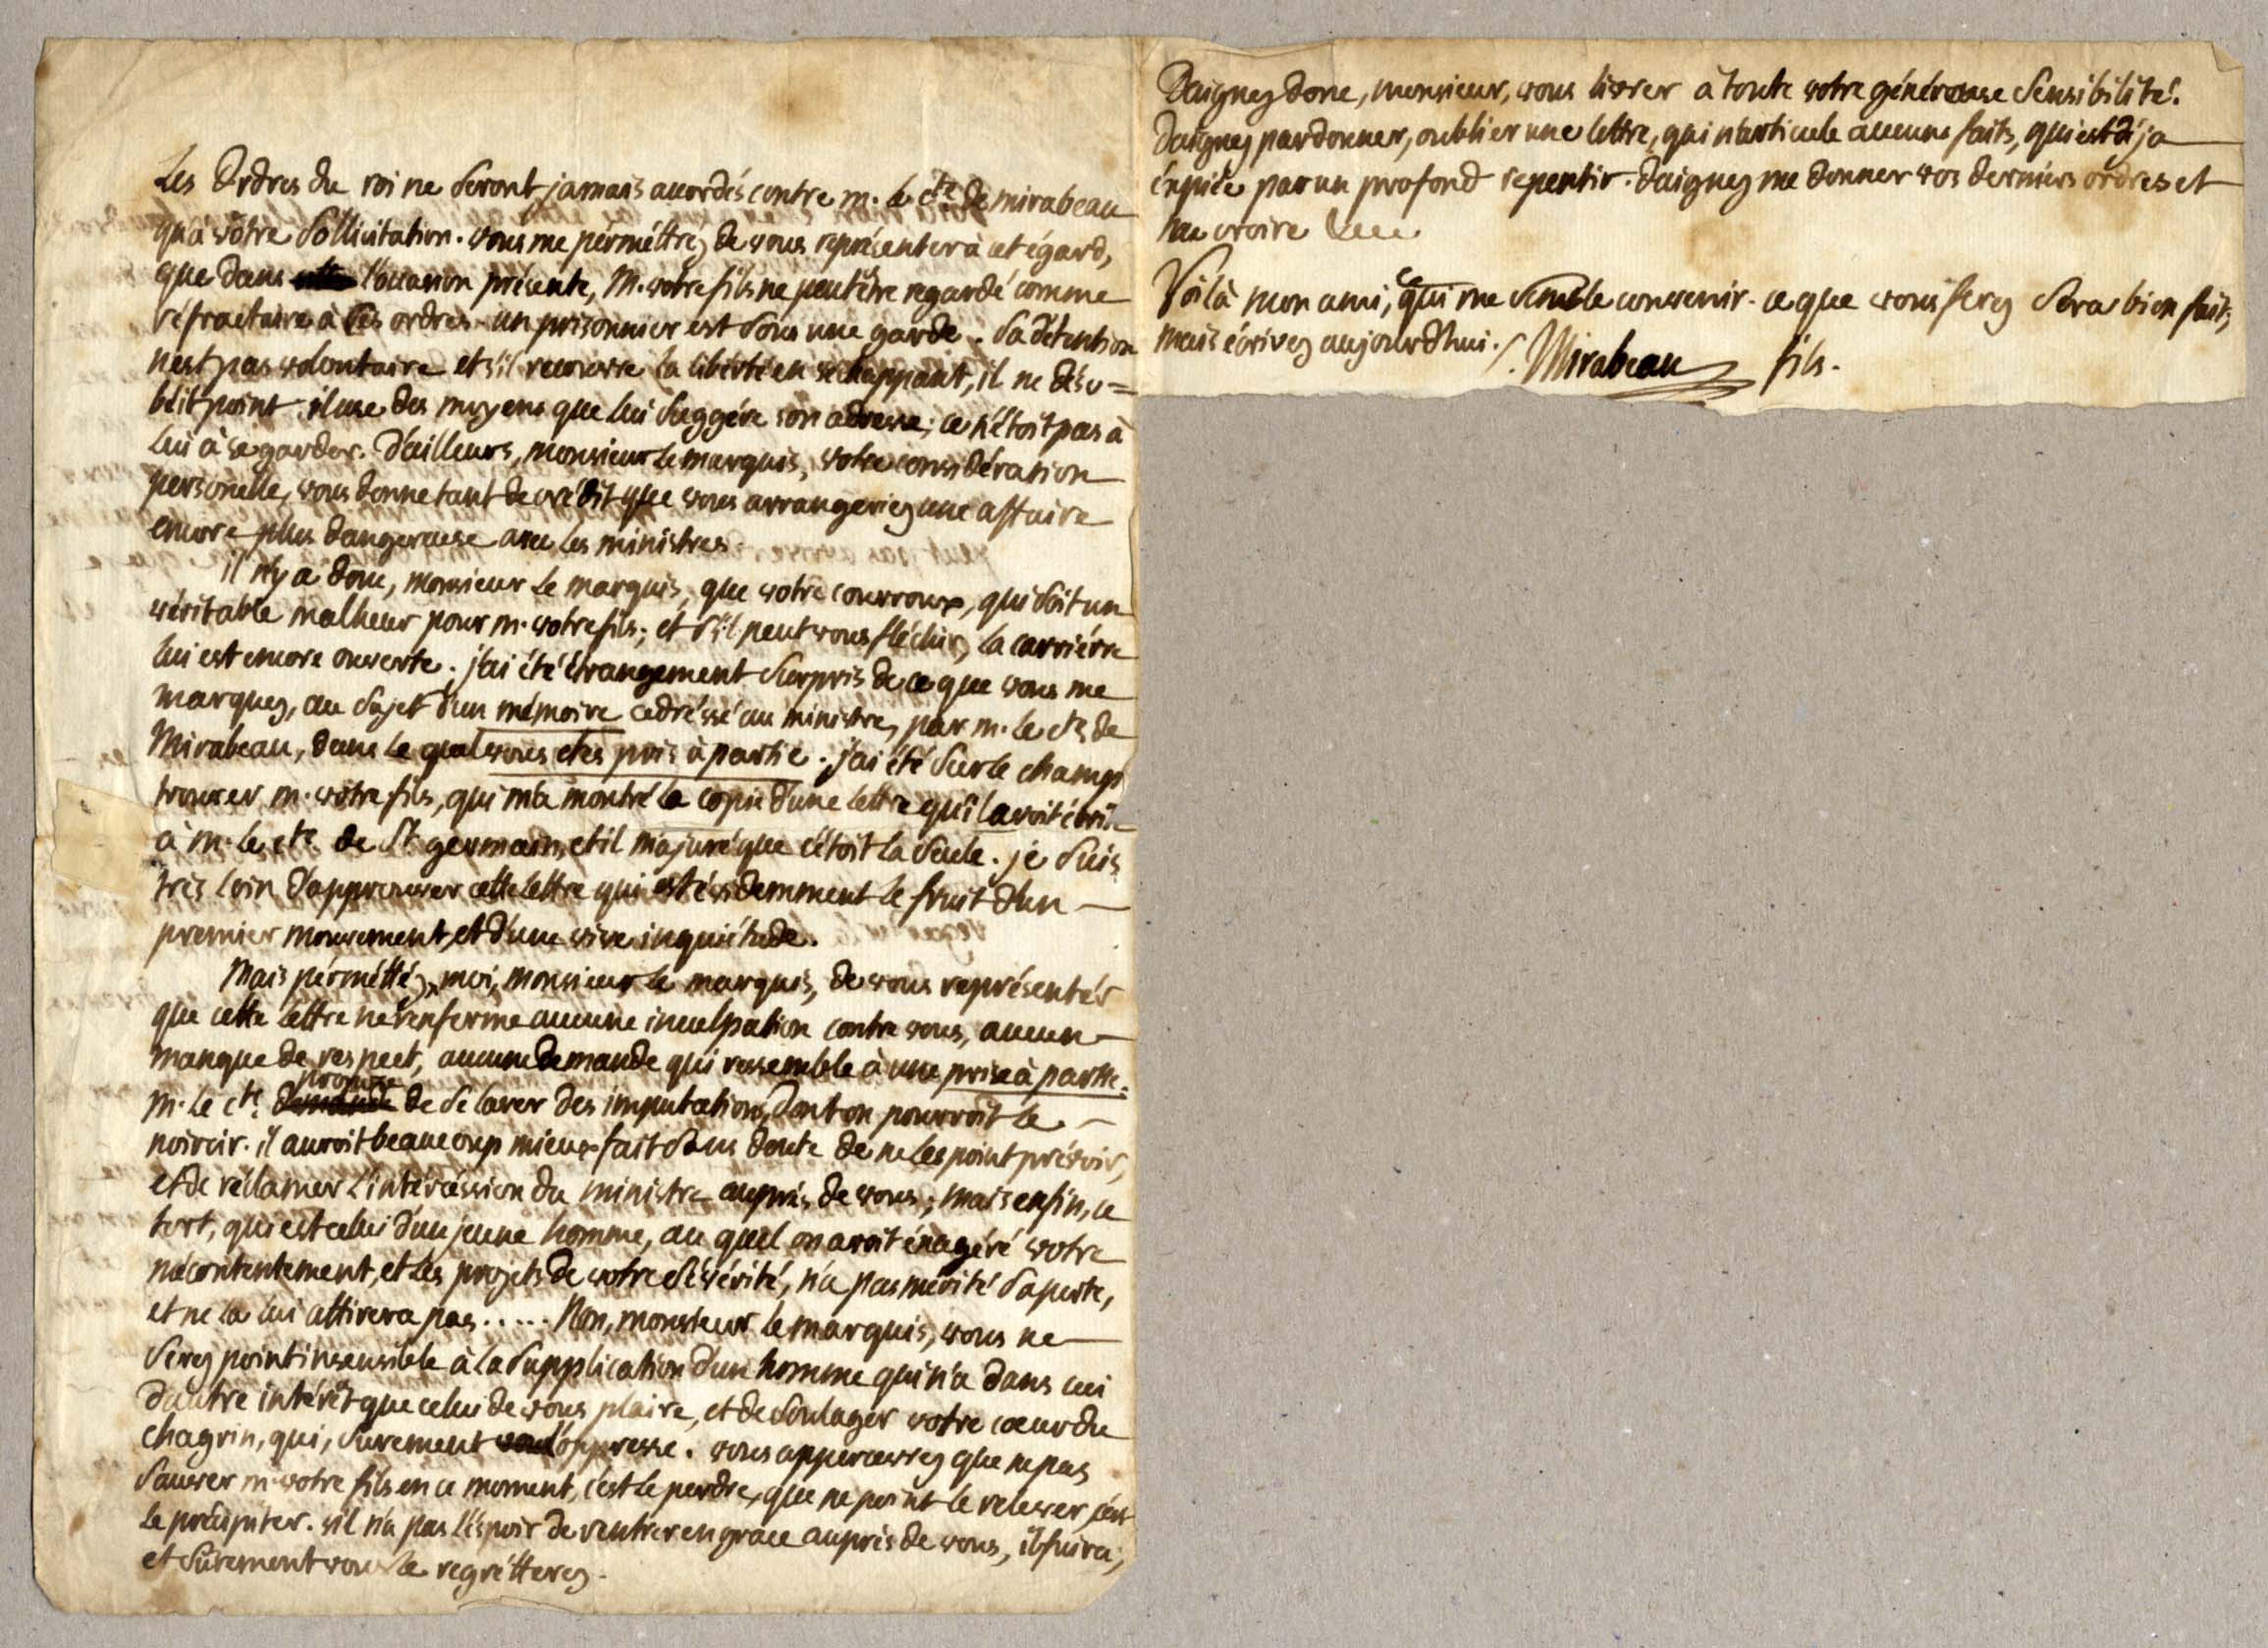 Les Ordres du roi ne seront jamais accordés contre m. le cte. de mirabeau
qu'à vôtre sollicitation. vous me pérméttréz de vous représenter à cet égard,
que dans l'occasion présente, M. votre fils ne peut être regardé comme
réfractaire à ces ordres. un prisonnier est sous une garde. sa détention
n'est pas volontaire et s'il recouvre la liberté en s'échappant, il ne déso=
béit point. il use des moyens que lui suggére son adresse; ce n'étoit pas à
lui à se garder. d'ailleurs, monsieur le marquis, votre considération
personelle, vous donne tant de crédit que vous arrangeriez une affaire
encore plus dangereuse avec les ministres.
il n'y a donc, monsieur le marquis, que votre courroux, qui soit un
véritable malheur pour m. votre fils; et s'il peut vous fléchir, la carriérre
lui est encore ouverte. j'ai été étrangement surpris de ce que vous me
marquez, au sujet d'un mémoire adréssé au ministre, par m. le cte. de
Mirabeau, dans le quel vous etes pris à partie. j'ai été sur le champ
trouver m. votre fils, qui m'a montré la copie d'une lettre qu'il avoit écrite
à m. le cte. de St. germain, et il m'a juré que c'étoit la seule. je suis
très loin d'approuver cette lettre qui est évidemment le fruit d'un
premier mouvement, et d'une vive inquiétude.
Mais pérméttéz, moi, monsieur le marquis, de vous représentér
que cette lettre ne renferme aucune inculpation contre vous, aucun
manque de respect, aucune demande qui ressemble à une prise à partie.
m. le cte. demande propose de se laver des imputations, dont on pourroit le
noircir. il auroit beaucoup mieux fait sans doute de ne les point prévoir,
et de réclamer l'intércéssion du ministre auprès de vous; mais enfin, ce
tort, qui est celui d'un jeune homme, au quel on avoit éxagéré votre
mécontentement, et les projets de votre sévérité, n'a pas mérité sa perte,
et ne la lui attirera pas..... Non, monsieur le marquis, vous ne
serez point insensible à la supplication d'un homme qui n'a dans ceci
d'autre intérêt que celui de vous plaire, et de soulager votre cœur du
chagrin, qui, surement l'oppresse. vous appercevrez que ne pas
sauver m. votre fils en ce moment, c'est le perdre, que ne point le relever c'est
le précipiter. s'il n'a pas l'éspoir de rentrer en grace auprès de vous, il fuira;
et surement vous le regrétterez.
Daignez donc, monsieur, vous livrer à toute votre généreuse sensibilité.
Daignez pardonner, oublier une lettre, qui n'articule aucuns faits, qui est déja
éxpiée par un profond repentir. daignez me donner vos derniérs ordres et
me croire &c.
Voilà mon ami, ce qui me semble convenir. ce que vous ferez sera bien fait;
mais écrivez aujourd'hui. Mirabeau fils.